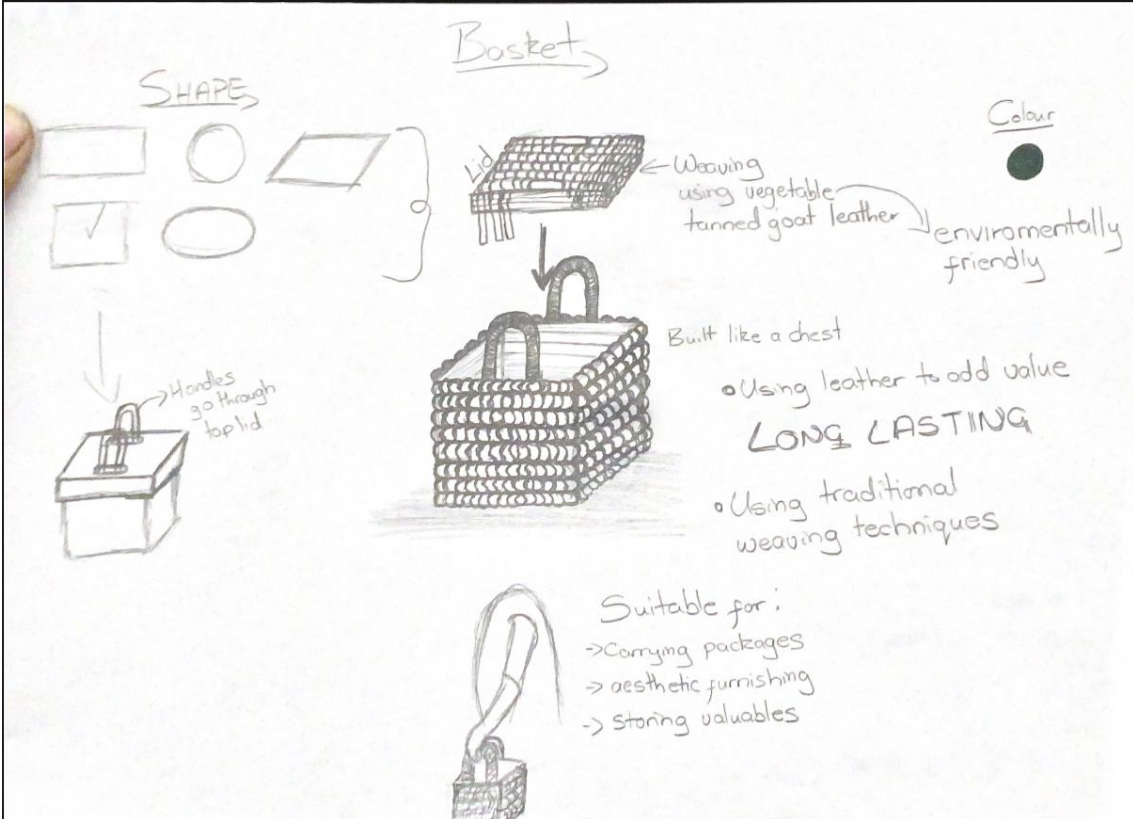 Basket
SHAPE
Colour
Lid
Weaving
using vegetable
tanned goat leather
enviromentally
friendly
Built like a chest
Handles
go through
top lid
Using leather to add value
LONG LASTING
Using traditional
weaving techniques
Suitable for:
-> Carrying packages
-> aesthetic furnishing
-> Storing valuables